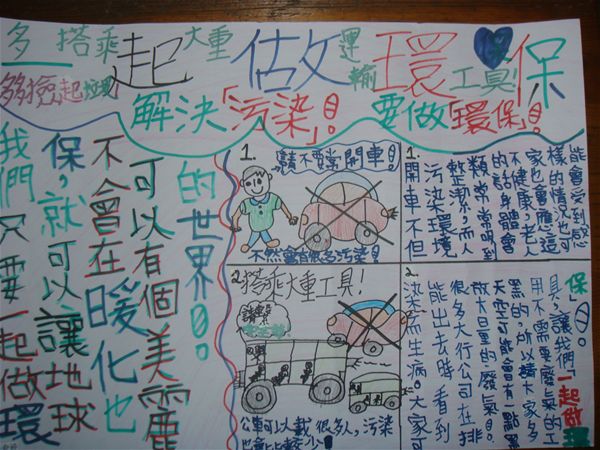 一起做環保
多搭乘大重運輸工具!
多撿起垃圾!
解決「污染」!
要做「環保」!
我們只要一起做環
保,就可以讓地球
不會在暖化也
可以有個美麗
的世界!。
1.
請不要常開車!
不然會有很多污染!
2.搭乘大重工具!
公車可以載很多人,污染
也會比較少!
1.
開車不但
污染環境
整潔,而人
類常常吸到
的話身體會
不健康,老人
家也會應這
樣的情況也可
能會受到感
2.
染而生病。大家可
能出去時看到
很多大行公司在排
放大日里的廢氣!
天空可能會有一點黑
黑的,所以請大家多
用不需要廢氣的工
具,讓我們「一起做環
保」!。